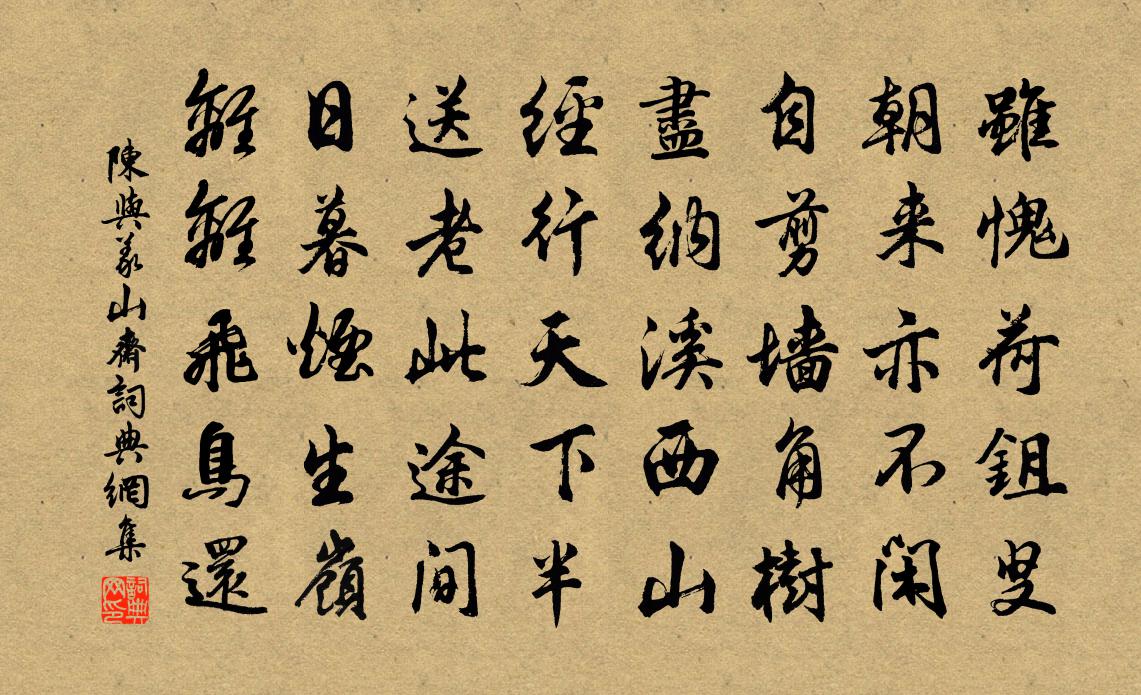 雖愧荷鉏叟
朝来亦不閑
自剪墻角樹
盡納溪西山
經行天下半
送老此途間
日暮煙生嶺
離離飛鳥還
陳與義山齋詞典網集
詞典网印